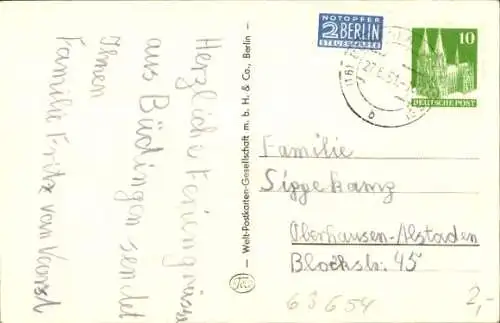 Herzliche Feriengrüsse
aus Büdingen sendet
Ihnen
Familie Fritz vom
— Welt-Postkarten-Gesellschaft m. b. H. & Co., Berlin —
NOTOPFER
2 BERLIN
STEUERMARKE
10
DEUTSCHE POST
27.6.51
b
Familie
Sippekamp
Oberhausen-Alstaden
Blockstr. 45
63654
2,-